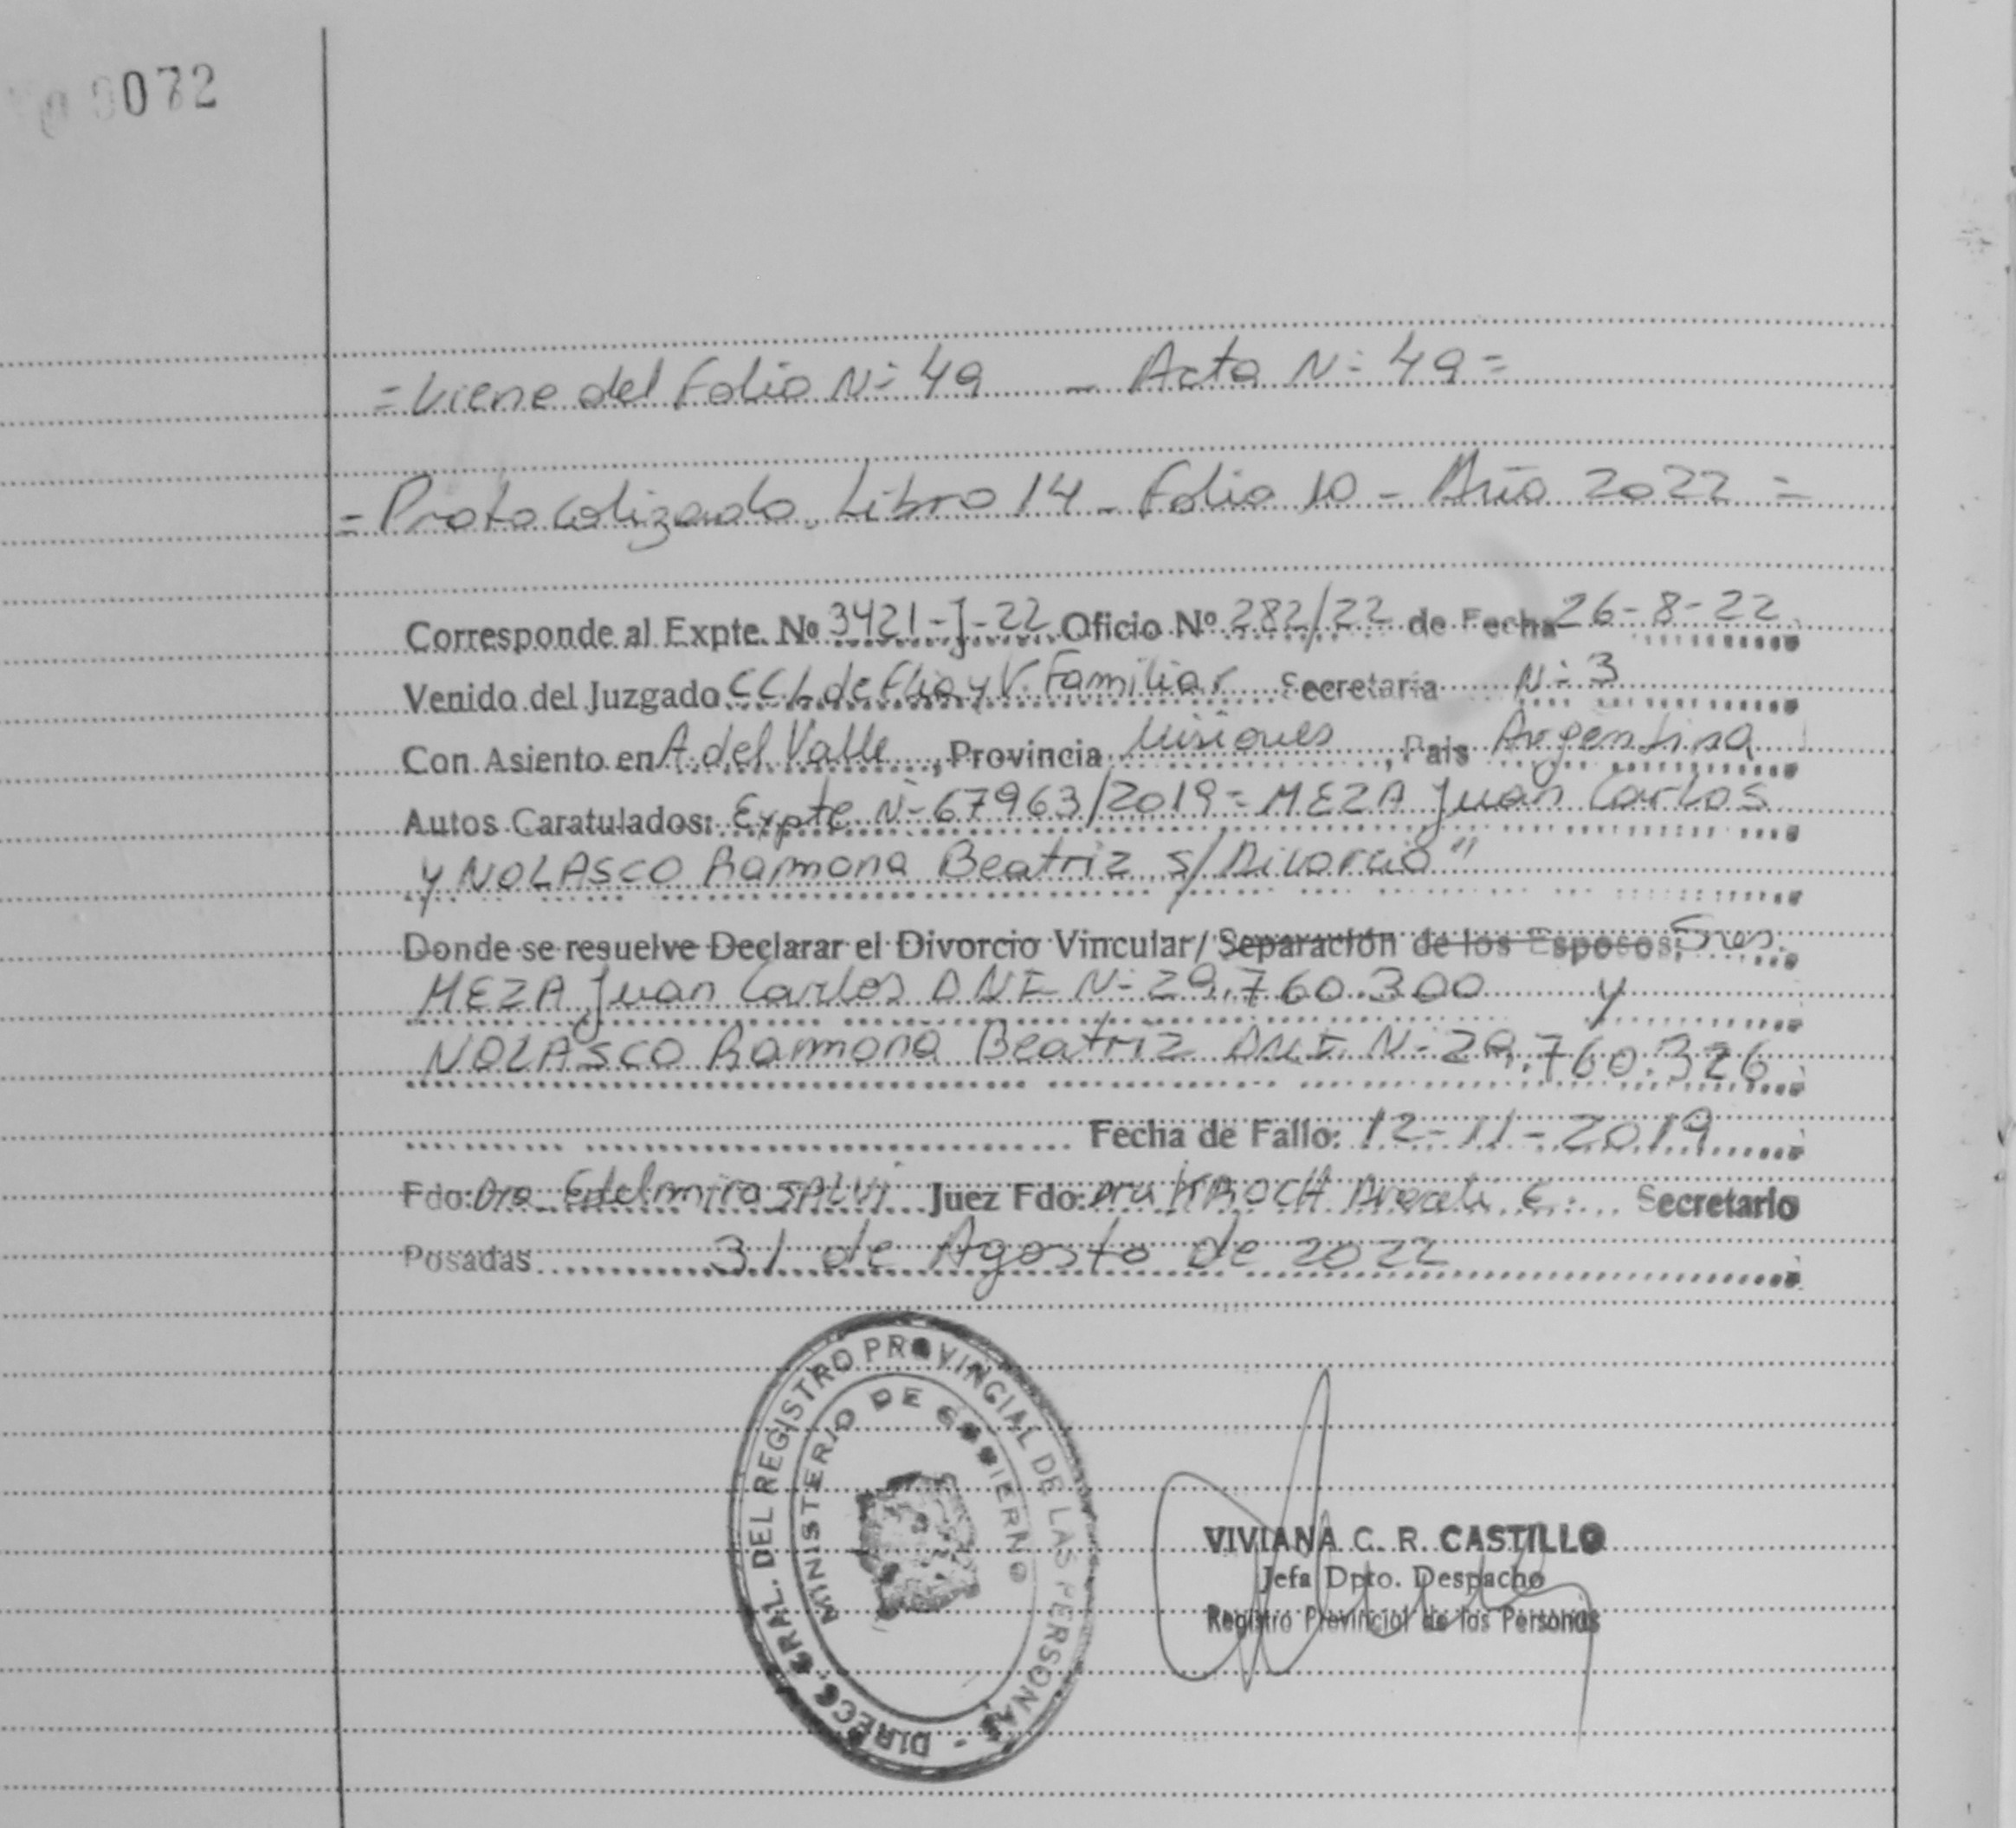 0072
= Viene del Folio Nº 49 - Acta Nº 49 =
= Protocolizado. Libro 14 - Folio 10 - Año 2022 =
Corresponde al Expte. Nº 3421-J-22 Oficio Nº 282/22 de Fecha 26-8-22
Venido del Juzgado CCL de Flia y V. Familiar Secretaria Nº 3
Con Asiento en A. del Valle, Provincia Misiones, Pais Argentina
Autos Caratulados: Expte Nº 67963/2019 = MEZA Juan Carlos
y NOLASCO Ramona Beatriz s/ Divorcio"
Donde se resuelve Declarar el Divorcio Vincular/ Separación de los Esposos; Sres.
MEZA Juan Carlos DNI Nº 29.760.300 y
NOLASCO Ramona Beatriz DNI Nº 29.760.326
Fecha de Fallo: 12-11-2019
Fdo: Dra Edelmira SALVI Juez Fdo: Dra KROCH E. Secretario
Posadas 31 de Agosto de 2022
DIRECC. GRAL. DEL REGISTRO PROVINCIAL DE LAS PERSONAS -
MINISTERIO DE GOBIERNO
VIVIANA C. R. CASTILLO
Jefa Dpto. Despacho
Registro Provincial de las Personas